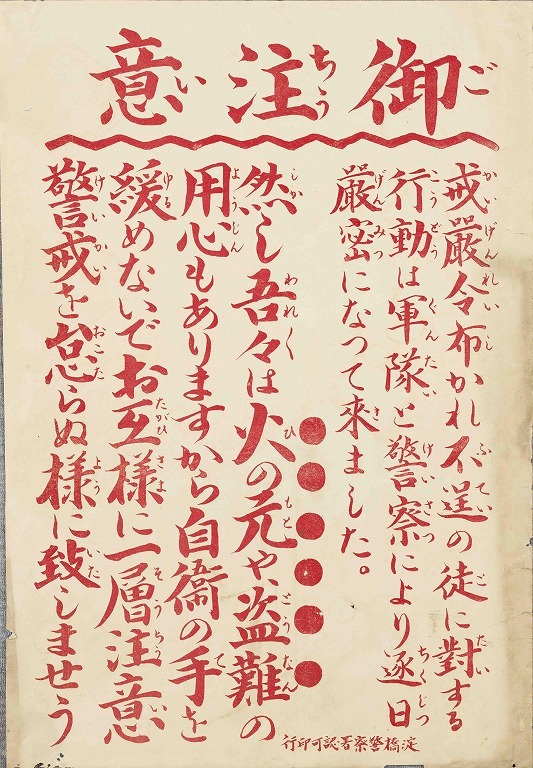 御注意
戒嚴令布かれ不逞の徒に對する
行動は軍隊と警察により逐日
嚴密になつて來ました。
然し吾々は火の元や、盗難の
用心もありますから自衞の手を
緩めないでお互様に一層注意
警戒を怠らぬ様に致しませう
淀橋警察署認可印行